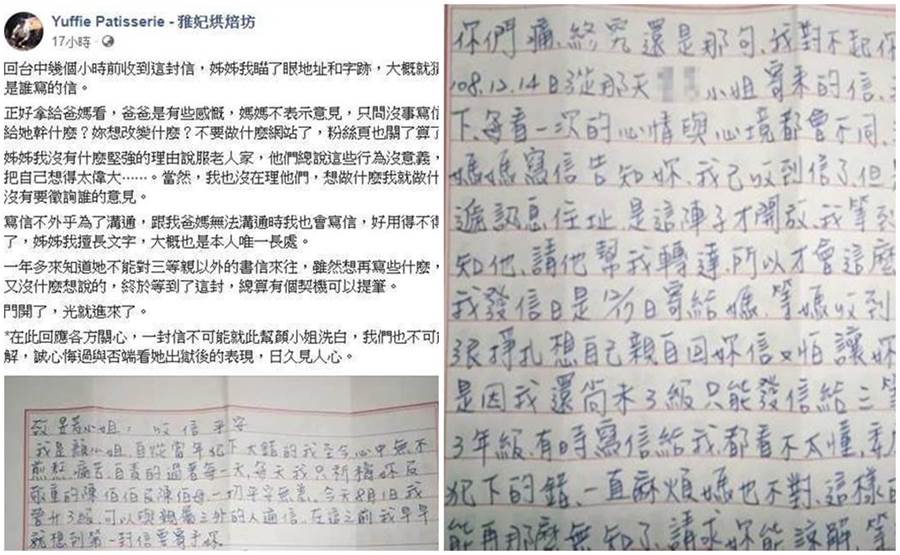 Yuffie Patisserie - 雅妃烘焙坊
17小時
回台中幾個小時前收到這封信，姊姊我瞄了眼地址和字跡，大概就
是誰寫的信。
正好拿給爸媽看，爸爸是有些感慨，媽媽不表示意見，只問沒事寫信
給她幹什麼？妳想改變什麼？不要做什麼網站了，粉絲頁也關了算了
姊姊我沒有什麼堅強的理由說服老人家，他們總說這些行為沒意義，
把自己想得太偉大……。當然，我也沒在理他們，想做什麼我就做什
沒有要徵詢誰的意見。
寫信不外乎為了溝通，跟我爸媽無法溝通時我也會寫信，好用得不得
了，姊姊我擅長文字，大概也是本人唯一長處。
一年多來知道她不能對三等親以外的書信來往，雖然想再寫些什麼，
又沒什麼想說的，終於等到了這封，總算有個契機可以提筆。
門開了，光就進來了。
*在此回應各方關心，一封信不可能就此幫顏小姐洗白，我們也不可
解，誠心悔過與否端看她出獄後的表現，日久見人心。
小姐：收信平安
我是顏小姐，自從當年犯下大錯的我至今心中無不
煎熬痛苦、自責的過著每一天，每天我只祈禱妳及
敬重的陳伯伯及陳伯母一切平安無恙。今天8月1日我
晉升3級，可以與親屬三外的人通信，在這之前我早早
就想到第一封信要寄予妳
你們痛、終究還是那句、我對不起你
108.12.14日從那天 小姐寄來的信、
下、每看一次的心情與心境都會不同、
媽媽寫信告知妳、我已收到信了，但
遞訊息住址、是這陣子才開放、我等到
知他、請他幫我轉達、所以才會這麼
我發信日是12/17日寄給媽、等媽收到
很掙扎想自己親自回妳信、又怕讓妳
是因我還尚未3級只能發信給三等
3年級、有時寫信給我、都看不太懂、
犯下的錯、一直麻煩媽也不對、這樣
能再那麼無知了、請求妳能諒解、等